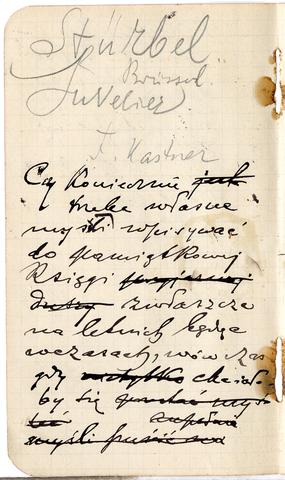 Stürbel
Brüssel
Juvelier
F. Kastner
Czy koniecznie jak
trzeba własne
myśli wpisywać
do pamiątkowej
Księgi
duszy zwłaszcza
na letnich będąc
wczasach, wówczas
gdy nie tylko chciało
by się
zupełnie
myśli puścić